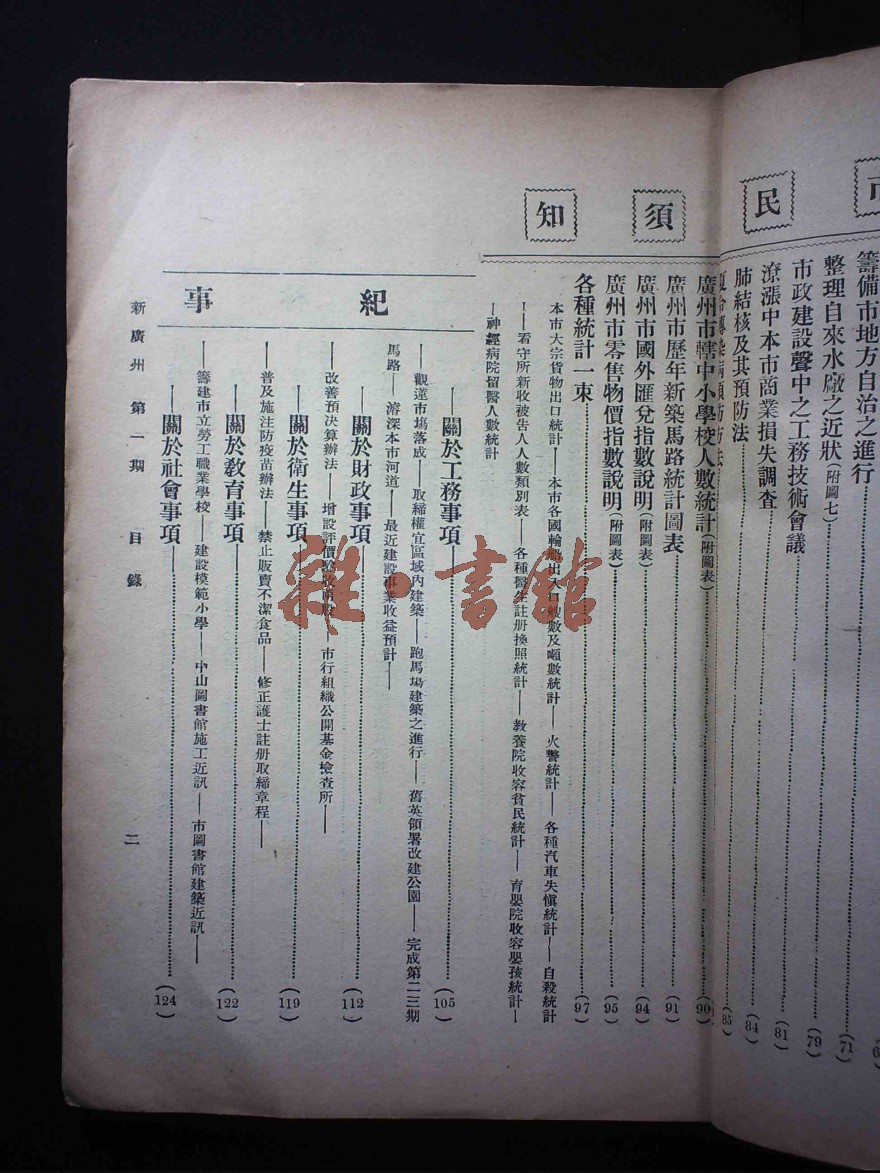 民須知
籌備市地方自治之進行
整理自來水廠之近狀(附圖七)(71)
市政建設聲中之工務技術會議(79)
潦漲中本市商業損失調查(81)
肺結核及其預防法(84)
(85)
廣州市轄中小學校人數統計(附圖表)(90)
廣州市歷年新築馬路統計圖表(91)
廣州市國外匯兌指數說明(附圖表)(94)
廣州市零售物價指數說明(附圖表)(95)
各種統計一束(97)
本市大宗貨物出口統計——本市各國輪船出入口艘數及噸數統計——火警統計——各種汽車失愼統計——自殺統計
——看守所新收被告人人數類別表——各種醫生註册換照統計——敎養院收容貧民統計——育嬰院收容嬰孩統計——
——神經病院留醫人數統計
紀事
——關於工務事項(105)
——觀蓮市塲落成——取締權宜區域內建築——跑馬塲建築之進行——舊英領署改建公園——完成第二三期
馬路——濬深本市河道——最近建設事業收益預計——
——關於財政事項(112)
——改善預决算辦法——增設評價——市行組織公開基金檢查所——
——關於衛生事項(119)
——普及施注防疫苗辦法——禁止販賣不潔食品——修正護士註册取締章程——
——關於敎育事項(122)
——籌建市立勞工職業學校——建設模範小學——中山圖書館施工近訊——市圖書館建築近訊——
——關於社會事項(124)
新廣州 第一期 目錄
二
雜·書館